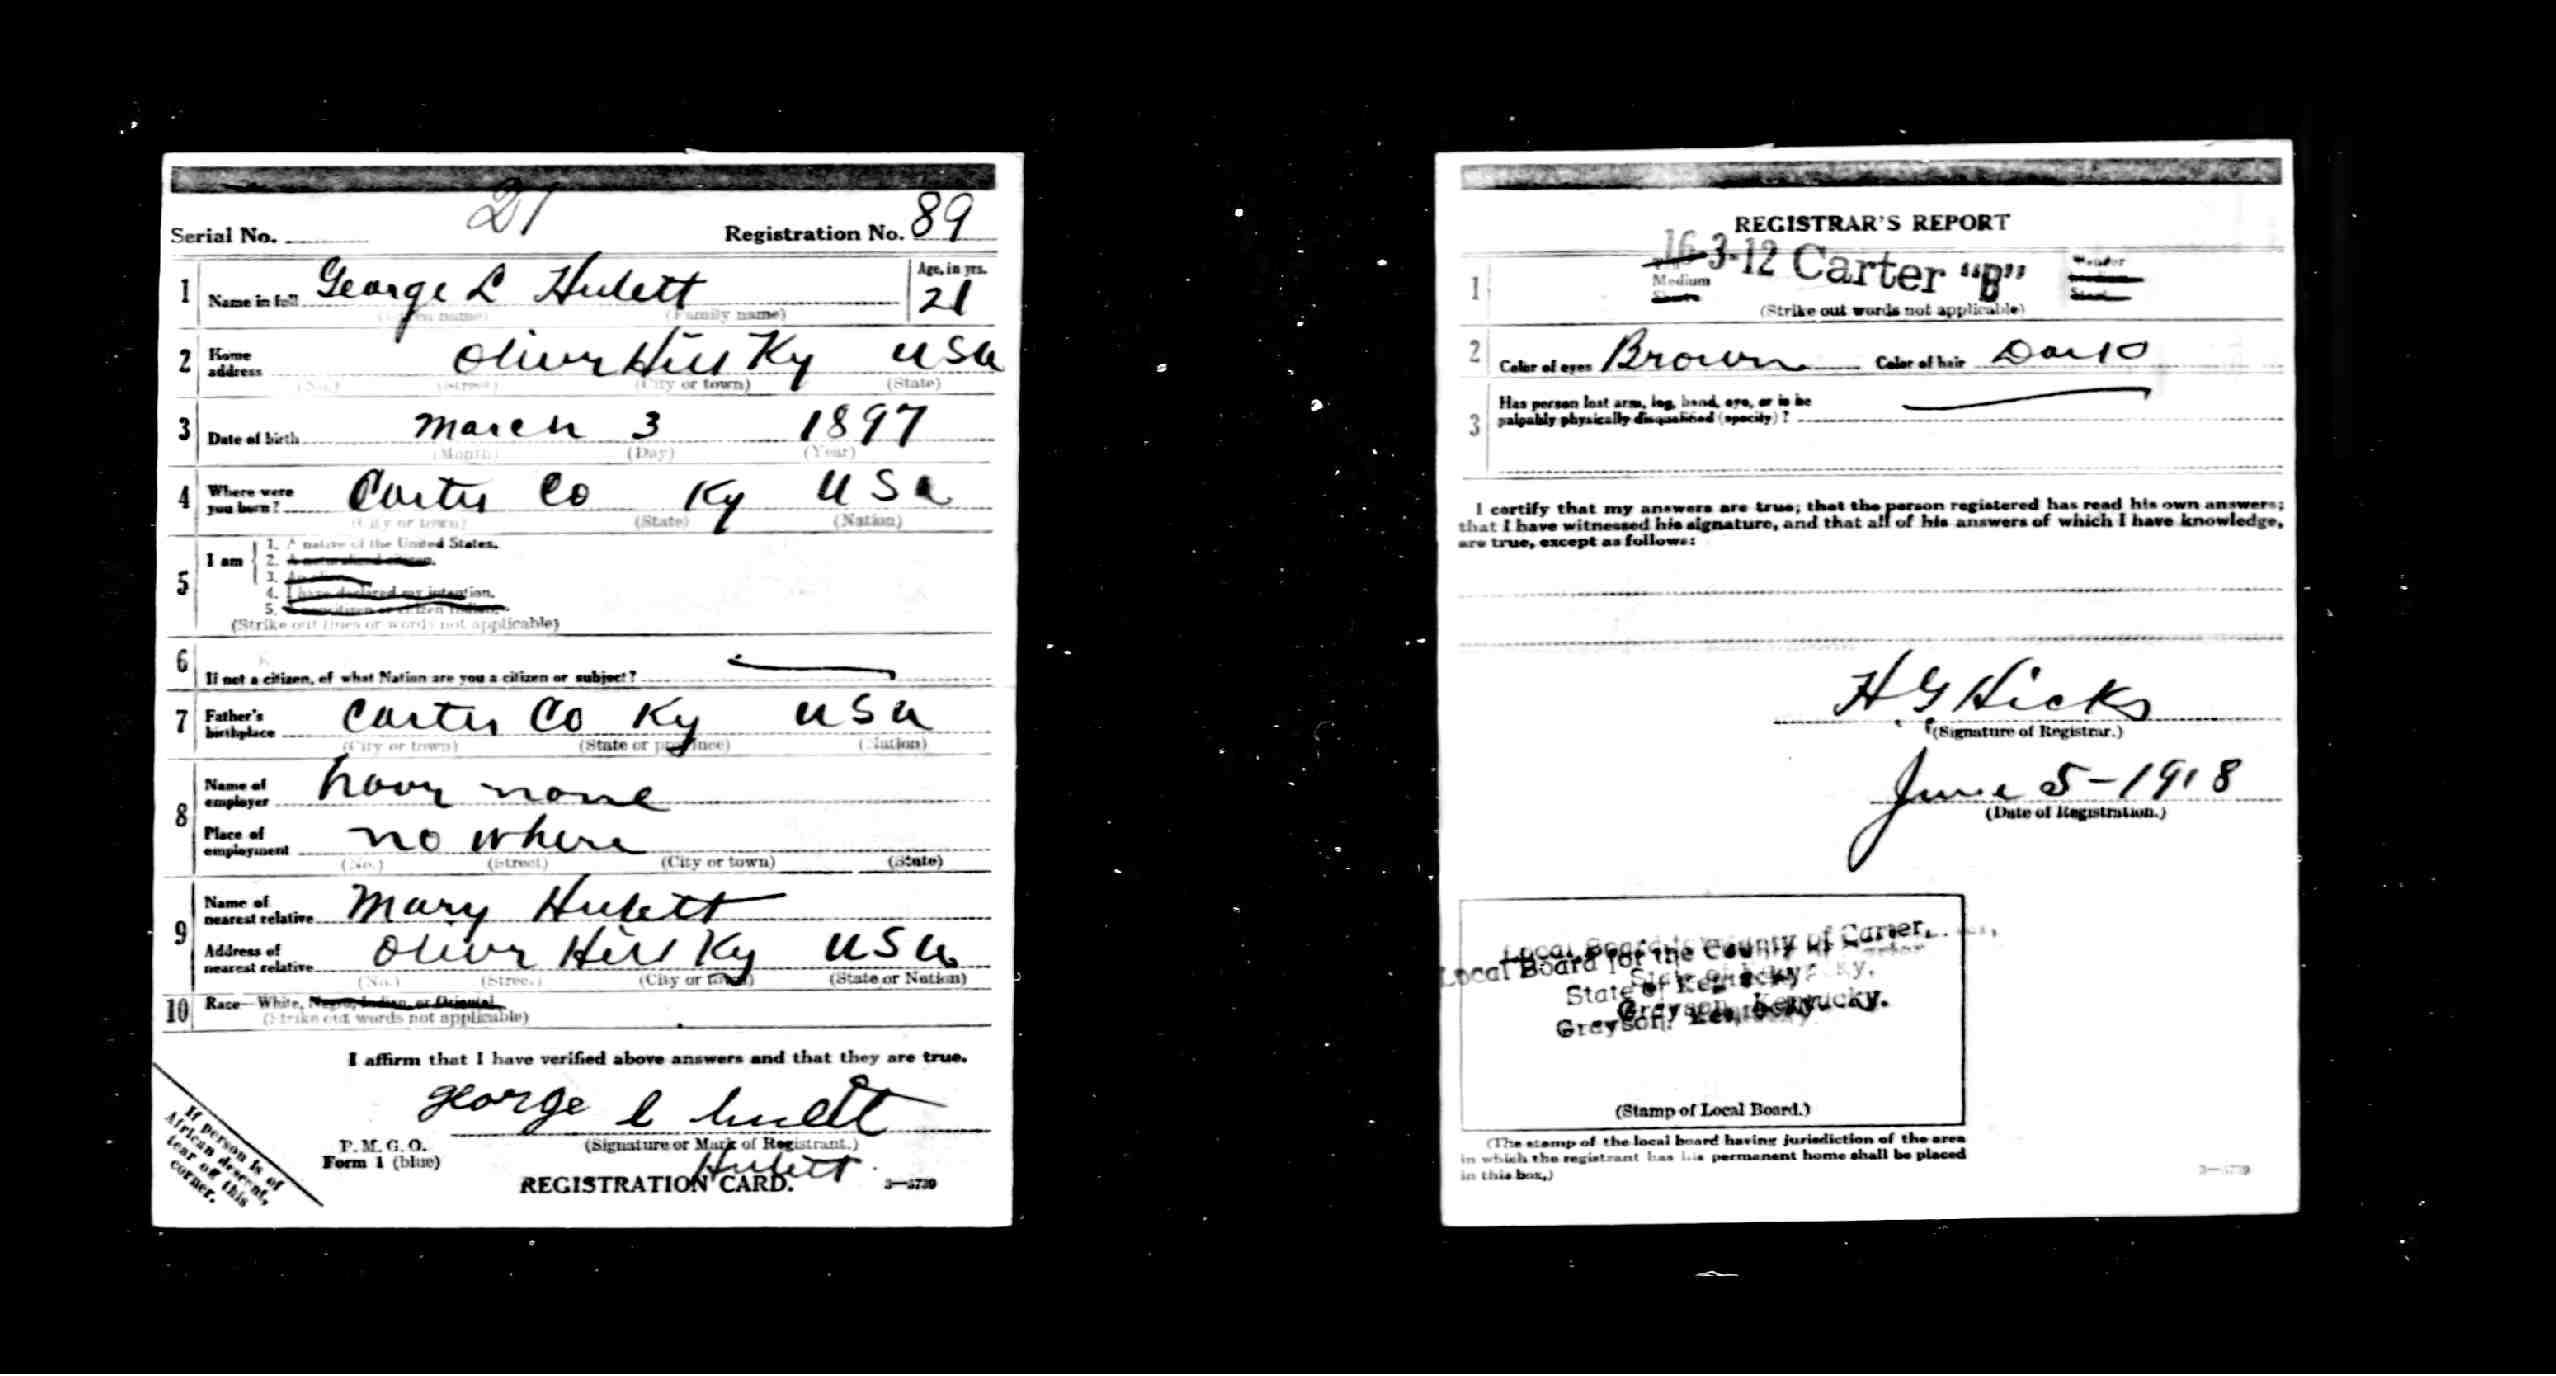 21
Serial No. Registration No. 89
1 Name in full George L Hulett Age, in yrs. 21
(Given name) (Family name)
2 Home address Olive Hill Ky USA
(No.) (Street) (City or town) (State)
3 Date of birth March 3 1897
(Month) (Day) (Year)
4 Where were you born? Carter Co Ky USA
(City or town) (State) (Nation)
5 I am
1. A native of the United States.
2. A naturalized citizen.
3. An alien.
4. I have declared my intention.
5. A noncitizen or citizen Indian.
(Strike out lines or words not applicable)
6 If not a citizen, of what Nation are you a citizen or subject?
7 Father's birthplace Carter Co Ky USA
(City or town) (State or province) (Nation)
8 Name of employer have none
Place of employment no where
(No.) (Street) (City or town) (State)
9 Name of nearest relative Mary Hulett
Address of nearest relative Olive Hill Ky USA
(No.) (Street) (City or town) (State or Nation)
10 Race—White, Negro, Indian, or Oriental
(Strike out words not applicable)
I affirm that I have verified above answers and that they are true.
George L
(Signature or Mark of Registrant.)
Hulett
P. M. G. O.
Form 1 (blue)
REGISTRATION CARD. 3—5739
If person is
African descent,
tear off this
corner.
REGISTRAR'S REPORT
16 3-12 Carter "B"
1 Medium Short Slender
(Strike out words not applicable)
2 Color of eyes Brown Color of hair Dark
3 Has person lost arm, leg, hand, eye, or is he
palpably physically disqualified (specify)?
I certify that my answers are true; that the person registered has read his own answers;
that I have witnessed his signature, and that all of his answers of which I have knowledge,
are true, except as follows:
H G Hicks
(Signature of Registrar.)
June 5-1918
(Date of Registration.)
Local Board for the County of Carter,
State of Kentucky
Grayson, Kentucky.
(Stamp of Local Board.)
(The stamp of the local board having jurisdiction of the area
in which the registrant has his permanent home shall be placed
in this box.)
3—5739